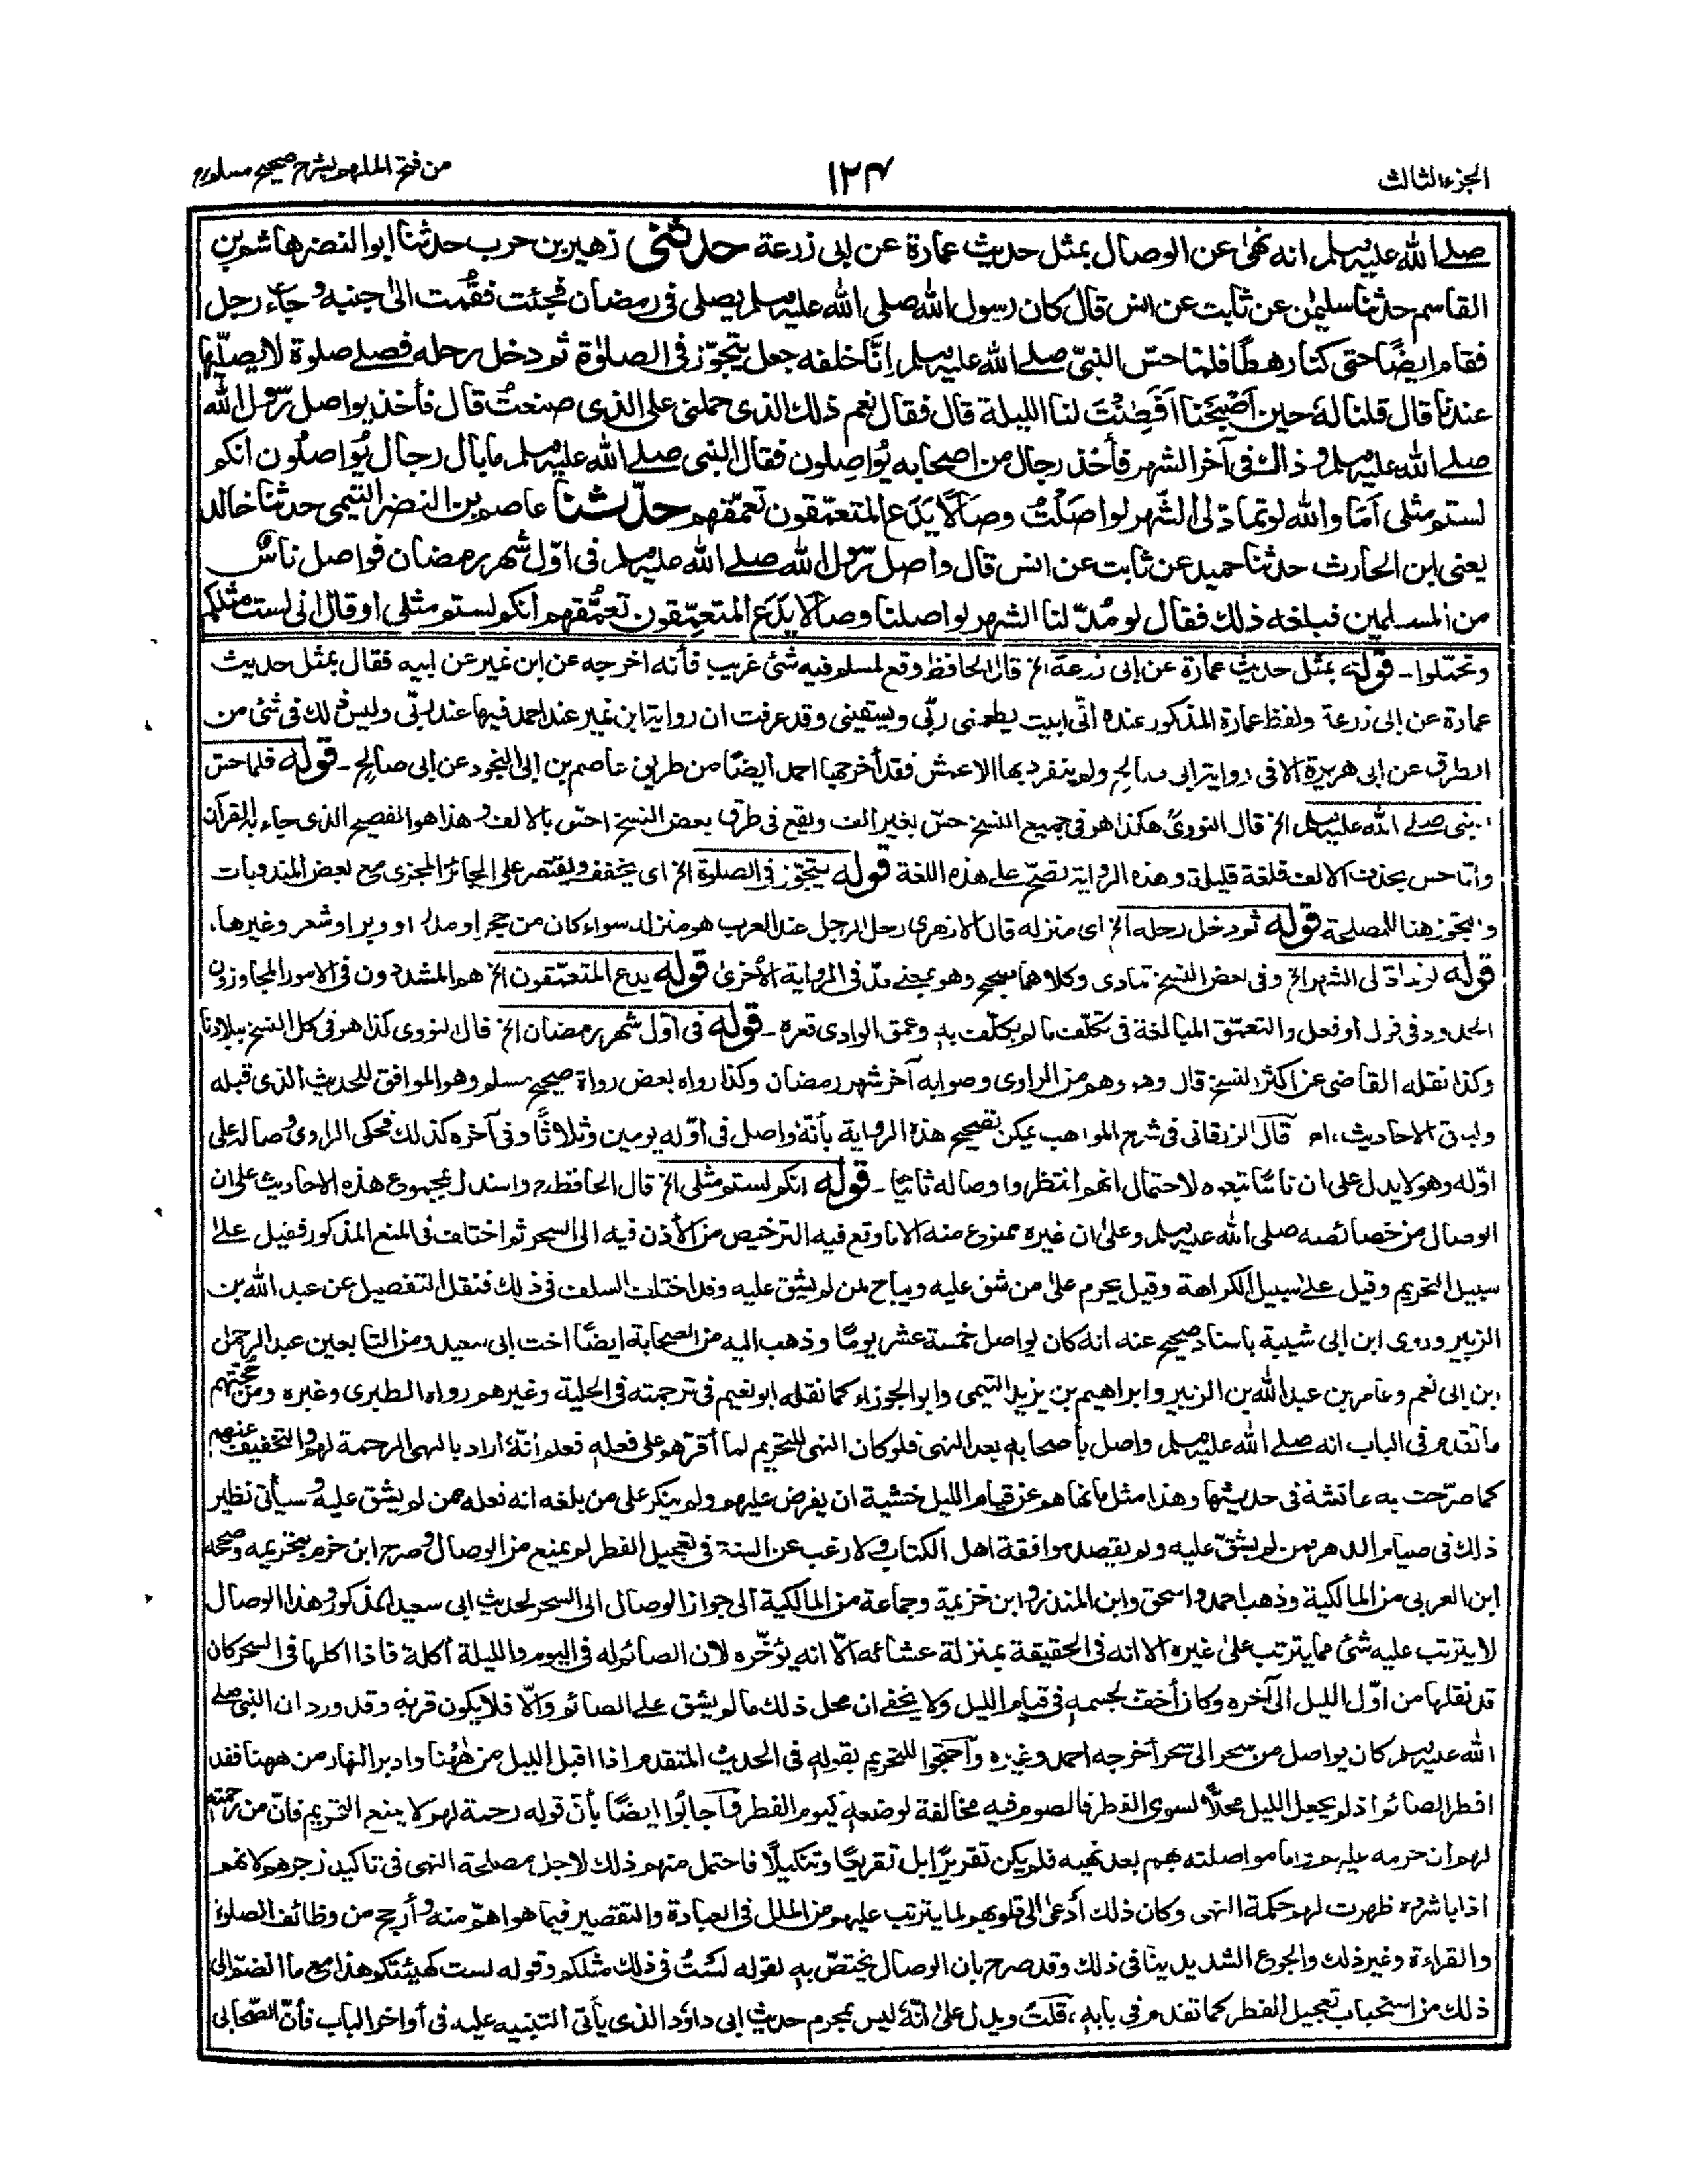 الجزء الثالث
١٢٤
من فتح الملهم بشرح صحيح مسلم
صلے الله عليه وسلم انه نهىٰ عن الوصال بمثل حديث عمارة عن ابى زرعة حدثنى زهير بن حرب حدثنا ابو النضر هاشم بن
القاسم حدثنا سليمٰن عن ثابت عن انس قال كان رسول الله صلى الله عليه وسلم يصلى فى رمضان فجئت فقُمت الىٰ جنبه وجاء رجل
فقام ايضًا حتى كنا رهطًا فلمّا حسّ النبىّ صلے الله عليه وسلم اِنَّا خلفه جعل يتجوّز فى الصلوٰة ثم دخل رحله فصلے صلوة لا يصلّيها
عندنا قال قلنا لهَ حين اَصْبَحْنَا اَفَطِنْتَ لنا الليلة قال فقال نعم ذلك الذى حملنى على الذى صنعتُ قال فأخذ يواصل رسول الله
صلے الله عليه وسلم وذاك فى آخر الشهر فأخذ رجال من اصحابه يُواصِلون فقال النبى صلے الله عليه وسلم ما بال رجال يُواصلُون انكم
لستم مثلى اَمَا والله لو تمادّ لى الشّهر لواصَلْتُ وصَالًا يَدَع المتعمّقون تعمّقهم حدّثنا عاصم بن النضر التيمى حدثنا خالد
يعنى ابن الحارث حدثنا حميد عن ثابت عن انس قال واصل رسول الله صلے الله عليه وسلم فى اوّل شهر رمضان فواصل ناسٌ
من المسلمين فبلغه ذلك فقال لو مُدّ لنا الشهر لواصلنا وصالًا يَدَع المتعمِّقون تعمُّقهم انكم لستم مثلى او قال انى لست مثلكم
وتحمّلوا ـ قوله بمثل حديث عمارة عن ابى زرعة الخ قال الحافظ وقع لمسلم فيه شئ غريب فأنه اخرجه عن ابن نمير عن ابيه فقال بمثل حديث
عمارة عن ابى زرعة ولفظ عمارة المذكور عنده انّى ابيت يطعمنى ربّى ويسقينى وقد عرفت ان رواية ابن نمير عند احمد فيها عند ربّى وليس ذلك فى شئ من
الطرق عن ابى هريرة الا فى رواية ابى صالح ولم ينفرد بها الاعمش فقد أخرجها احمد ايضًا من طريق عاصم بن ابى النجود عن ابى صالح ـ قوله فلما حسّ
النبى صلے الله عليه وسلم الخ قال النووىّ هكذا هو فى جميع النسخ حسّ بغير الف ويقع فى طرق بعض النسخ احسّ بالالف وهذا هو الفصيح الذى جاء به القرآن
وامّا حس بحذف الالف فلغة قليلة وهذه الرواية تصحّ على هذه اللغة قوله يتجوّز فى الصلوة الخ اى يخفف ويقتصر على الجائز المجزى مع بعض المندوبات
والتجوز هنا للمصلحة قوله ثم دخل رحله الخ اى منزله قال الازهرى رحل الرجل عند العرب هو منزله سواء كان من حجر او مدر او وبر او شعر وغيرها.
قوله لو تمادّ لى الشهر الخ وفى بعض النسخ تمادى وكلاهما صحيح وهو بمعنے مدّ فى الرواية الأخرىٰ قوله يدع المتعمّقون الخ هم المشددون فى الامور المجاوزون
الحدود فى قول او فعل والتعمّق المبالغة فى تكلّف ما لم يكلّف به وعمق الوادى قعره ـ قوله فى اوّل شهر رمضان الخ قال النووى كذا هو فى كل النسخ ببلادنا
وكذا نقله القاضى عن اكثر النسخ قال وهو وهم من الراوى وصوابه آخر شهر رمضان وكذا رواه بعض رواة صحيح مسلم وهو الموافق للحديث الذى قبله
ولباقى الاحاديث، اه قال الزرقانى فى شرح المواهب يمكن تصحيح هذه الرواية بأنّه واصل فى اوّله يومين وثلاثًا وفى آخره كذلك فحكى الراوى وصاله على
اوّله وهو لا يدل على ان ناسًا تبعوه لاحتمال انهم انتظروا وصاله ثانيًا ـ قوله انكم لستم مثلى الخ قال الحافظ رح واستدل بمجموع هذه الاحاديث على ان
الوصال من خصائصه صلى الله عليه وسلم وعلىٰ ان غيره ممنوع منه الا ما وقع فيه الترخيص من الأذن فيه الى السحر ثم اختلف فى المنع المذكور فقيل علے
سبيل التحريم وقيل علےٰ سبيل الكراهة وقيل يحرم علىٰ من شق عليه ويباح لمن لم يشق عليه وقد اختلف السلف فى ذلك فنقل التفصيل عن عبد الله بن
الزبير وروى ابن ابى شيبة باسناد صحيح عنه انه كان يواصل خمسة عشر يومًا وذهب اليه من الصحابة ايضًا اخت ابى سعيد ومن التابعين عبد الرحمٰن
ابن ابى نعم وعامر بن عبد الله بن الزبير وابراهيم بن يزيد التيمى وابو الجوزاء كما نقله ابو نعيم فى ترجمته فى الحلية وغيرهم رواه الطبرى وغيره ومن حُجّتهم
ما تقدم فى الباب انه صلے الله عليه وسلم واصل بأصحابه بعد النهى فلو كان النهى للتحريم لما أقرّهم على فعله فعلم انّه أراد بالنهى الرحمة لهم والتخفيف عنهم
كما صرّحت به عائشة فى حديثها وهذا مثل ما نهاهم عن قيام الليل خشية ان يفرض عليهم ولم ينكر على من بلغه انه فعله ممن لم يشق عليه وسيأتى نظير
ذلك فى صيام الدهر فمن لم يشقّ عليه ولم يقصد موافقة اهل الكتاب ولا رغب عن السنة فى تعجيل الفطر لم يمنع من الوصال وصرح ابن حزم بتحريمه وصححه
ابن العربى من المالكية وذهب احمد واسحق وابن المنذر وابن خزيمة وجماعة من المالكية الى جواز الوصال الى السحر لحديث ابى سعيد المذكور وهذا الوصال
لا يترتب عليه شئ مما يترتب علىٰ غيره الا انه فى الحقيقة بمنزلة عشائه الّا انه يؤخّره لان الصائم له فى اليوم والليلة أكلة فاذا اكلها فى السحر كان
قد نقلها من اوّل الليل الى آخره وكان أخف لجسمه فى قيام الليل ولا يخفےٰ ان محل ذلك ما لم يشق علے الصائم والّا فلا يكون قربة وقد ورد ان النبى صلے
الله عليه وسلم كان يواصل من سحر الى سحر أخرجه احمد وغيره واحتجوا للتحريم بقوله فى الحديث المتقدم اذا اقبل الليل من هٰهُنا وادبر النهار من ههنا فقد
افطر الصائم اذ لم يجعل الليل محلًّا لسوى الفطر فالصوم فيه مخالفة لوضعه كيوم الفطر وأجابُوا ايضًا بأنّ قوله رحمة لهم لا يمنع التحريم فانّ من رحمته
لهم ان حرمه عليهم واما مواصلته بهم بعد نهيه فلم يكن تقريرًا بل تقريعًا وتنكيلًا فاحتمل منهم ذلك لاجل مصلحة النهى فى تأكيد زجرهم لانهم
اذا باشروه ظهرت لهم حكمة النهى وكان ذلك أدعىٰ الى قلوبهم لما يترتب عليهم من الملل فى العبادة والتقصير فيما هو اهمّ منه وأرجح من وظائف الصلوة
والقراءة وغير ذلك والجوع الشديد ينافى ذلك وقد صرح بان الوصال يختصّ به لقوله لستُ فى ذلك مثلكم وقوله لست كهيئتكم هذا مع ما انضمّ الى
ذلك من استحباب تعجيل الفطر كما تقدم فى بابه، قلت ويدل علىٰ انّه ليس بمحرم حديث ابى داؤد الذى يأتى التنبيه عليه فى أواخر الباب فأنّ الصّحابى